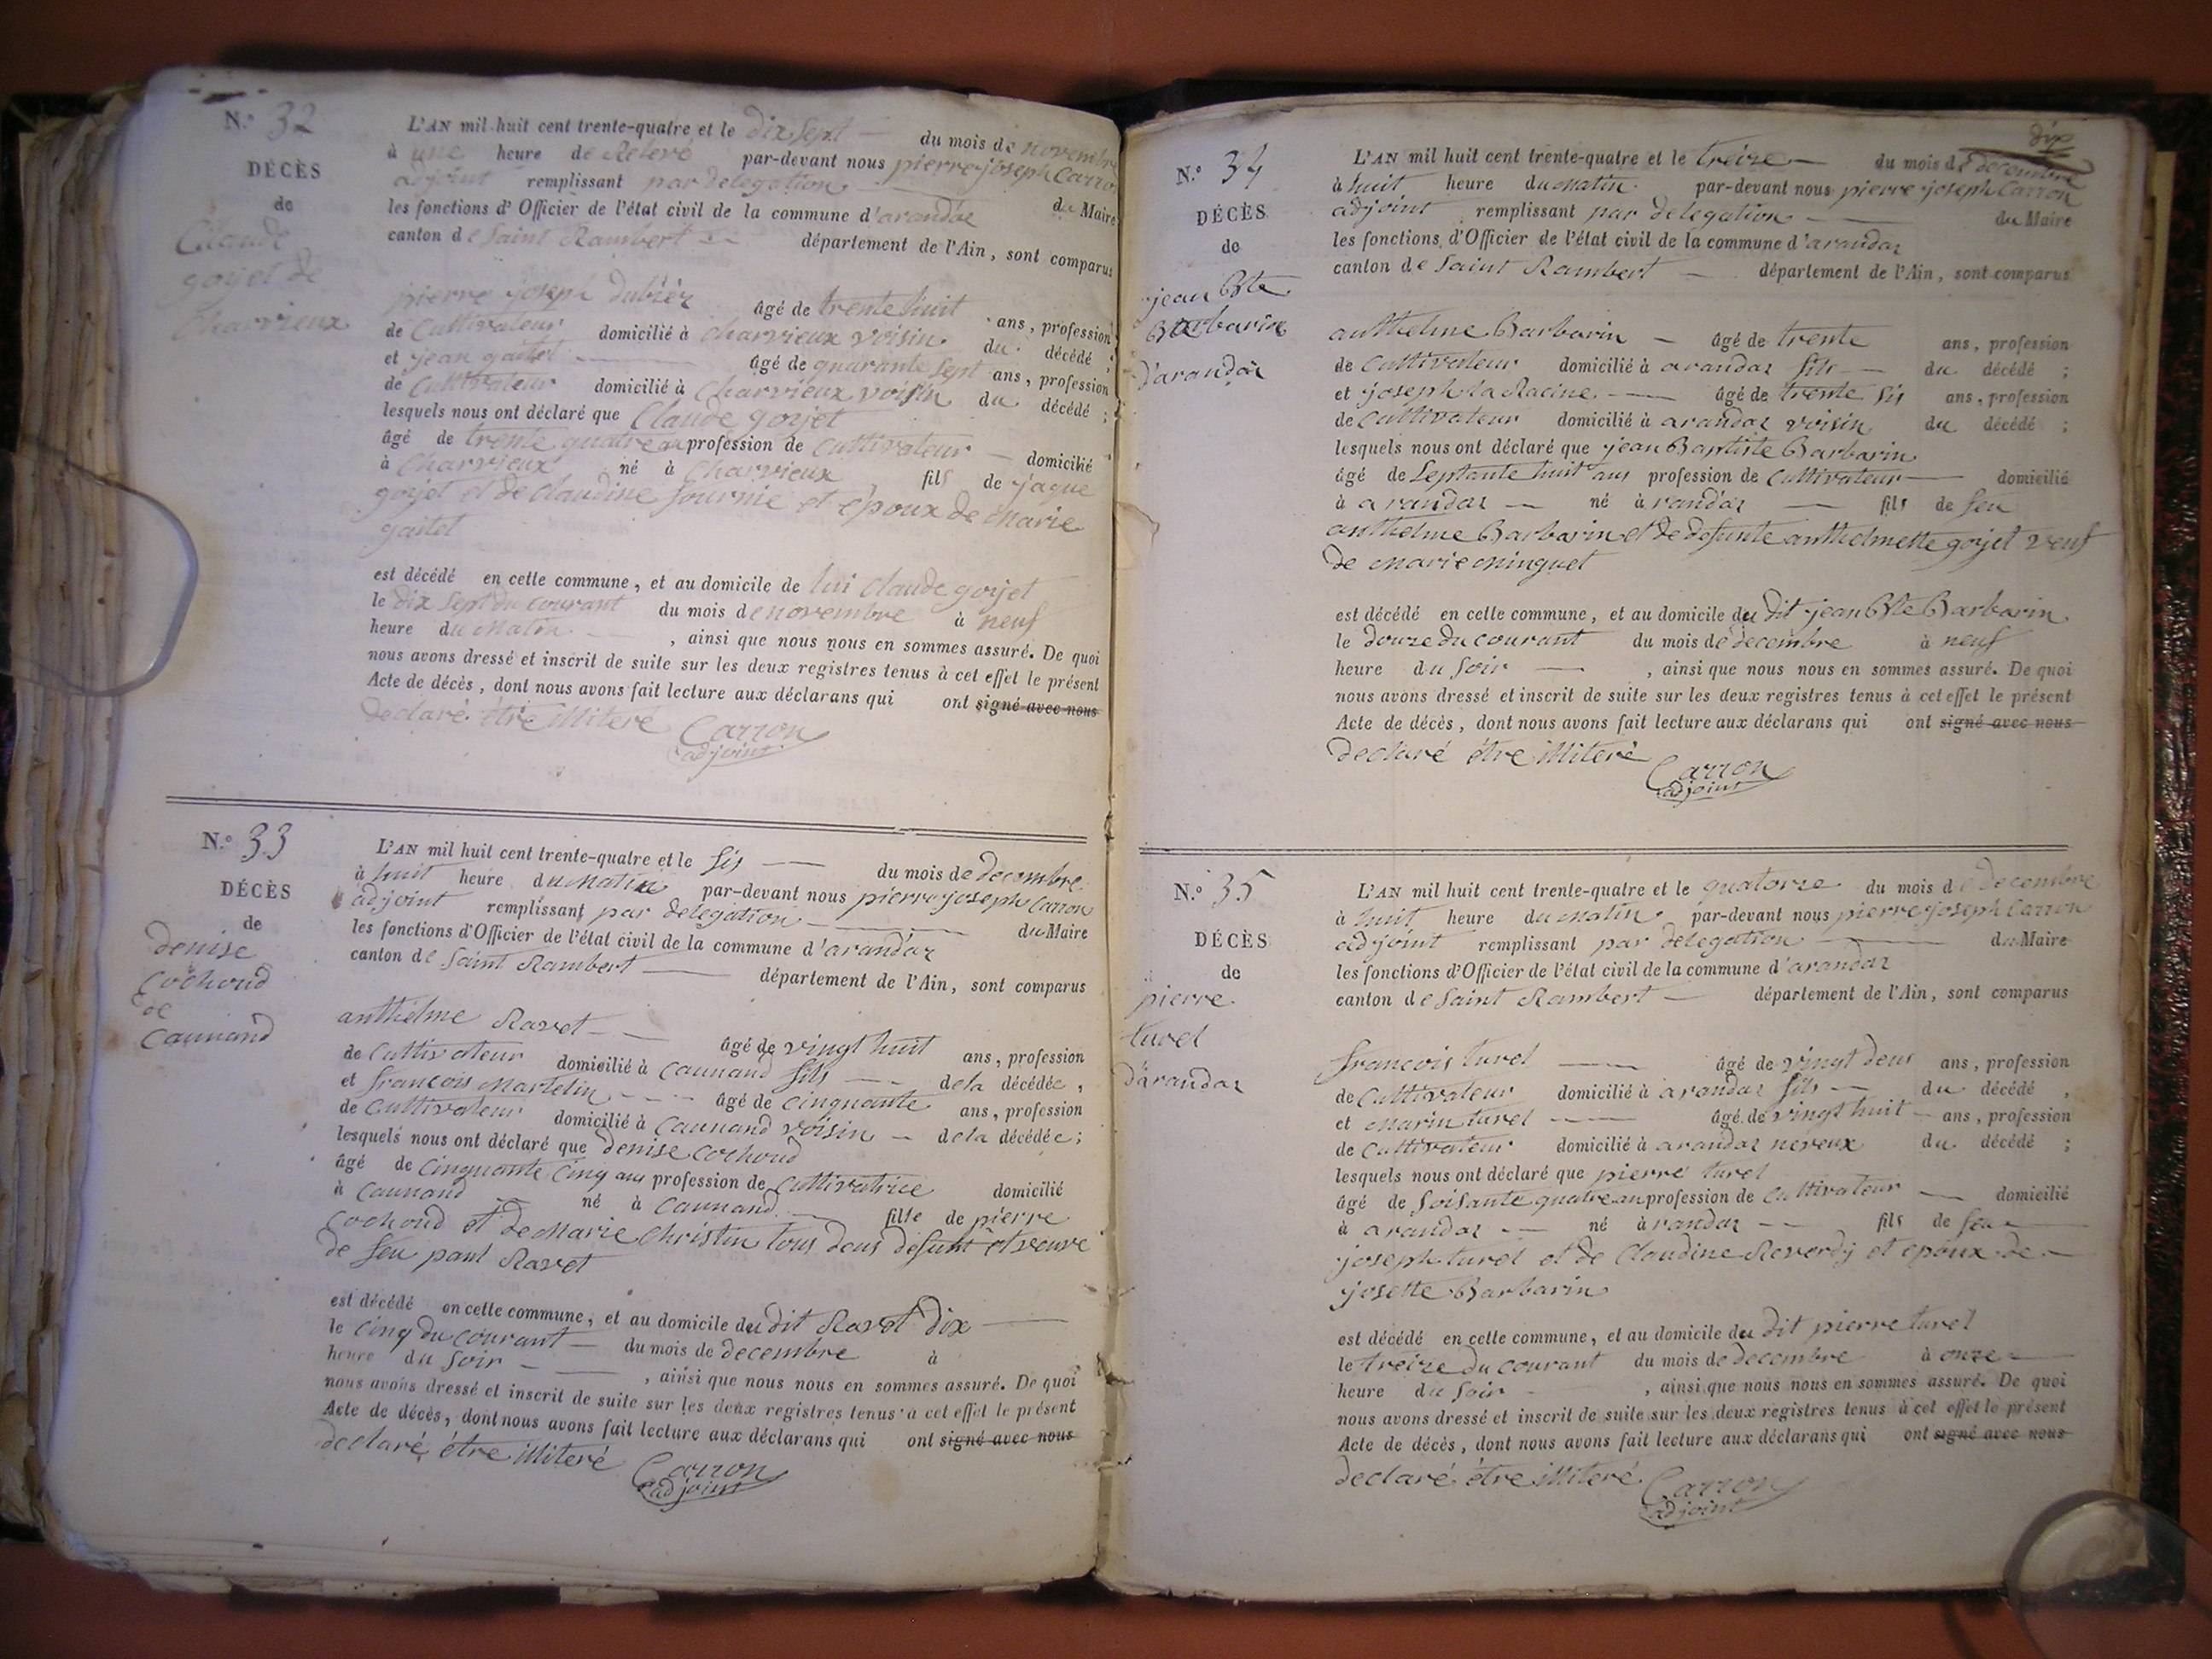 N.o 32
DÉCÈS
de
Claude
gojet de
Charvieux
L'AN mil huit cent trente-quatre et le dix sept du mois de novembre
à une heure de Relevé par-devant nous pierre joseph Carron
adjoint remplissant par delegation du Maire
les fonctions d'Officier de l'état civil de la commune d'arandaz
canton de Saint Rambert département de l'Ain, sont comparus
pierre joseph âgé de trente huit ans, profession
de Cultivateur domicilié à Charvieux voisin du décédé ;
et jean gaitet âgé de quarante sept ans, profession
de Cultivateur domicilié à Charvieux voisin du décédé ;
lesquels nous ont déclaré que Claude gojet
âgé de trente quatre an profession de Cultivateur domicilié
à Charvieux né à Charvieux, fils de jaque
gojet et de Claudine fournie et époux de Marie
gaitet
est décédé en cette commune, et au domicile de lui Claude gojet
le dix sept du courant du mois de novembre à neuf
heure du Matin, ainsi que nous nous en sommes assuré. De quoi
nous avons dressé et inscrit de suite sur les deux registres tenus à cet effet le présent
Acte de décès, dont nous avons fait lecture aux déclarans qui ont signé avec nous
declaré être illiteré Carron
adjoint
N.o 33
DÉCÈS
de
denise
Cochoud
de
Caunand
L'AN mil huit cent trente-quatre et le sis du mois de decembre
à huit heure du Matin par-devant nous pierre joseph Carron
adjoint remplissant par delegation du Maire
les fonctions d'Officier de l'état civil de la commune d'arandaz
canton de Saint Rambert département de l'Ain, sont comparus
anthelme Ravet âgé de vingt huit ans, profession
de Cultivateur domicilié à Caunand fils de la décédée,
et francois Martelin âgé de Cinquante ans, profession
de Cultivateur domicilié à Caunand voisin de la décédée;
lesquels nous ont déclaré que denise Cochoud
âgé de Cinquante Cinq ans profession de Cultivatrice domicilié
à Caunand né à Caunand fille de pierre
Cochoud et de Marie Christin tous deus defunt et veuve
de feu paul Ravet
est décédé en cette commune, et au domicile du dit Ravet dix
le Cinq du Courant du mois de decembre à
heure du Soir, ainsi que nous nous en sommes assuré. De quoi
nous avons dressé et inscrit de suite sur les deux registres tenus à cet effet le présent
Acte de décès, dont nous avons fait lecture aux déclarans qui ont signé avec nous
declaré être illiteré Carron
adjoint
dix
N.o 34
DÉCÈS
de
jean Bte
Barbarin
d'arandaz
L'AN mil huit cent trente-quatre et le treize du mois de decembre
à huit heure du Matin par-devant nous pierre joseph Carron
adjoint remplissant par delegation du Maire
les fonctions d'Officier de l'état civil de la commune d'arandaz
canton de Saint Rambert département de l'Ain, sont comparus
anthelme Barbarin âgé de trente ans, profession
de Cultivateur domicilié à arandaz fils du décédé ;
et joseph la Racine âgé de trente sis ans, profession
de Cultivateur domicilié à arandaz voisin du décédé ;
lesquels nous ont déclaré que jean Baptiste Barbarin
âgé de Septante huit ans profession de Cultivateur domicilié
à arandaz né à randaz fils de feu
anthelme Barbarin et de defunte anthelmette gojet veuf
de Marie Minguet
est décédé en cette commune, et au domicile du dit jean Bte Barbarin
le douze du courant du mois de decembre à neuf
heure du Soir, ainsi que nous nous en sommes assuré. De quoi
nous avons dressé et inscrit de suite sur les deux registres tenus à cet effet le présent
Acte de décès, dont nous avons fait lecture aux déclarans qui ont signé avec nous
declaré être illiteré
Carron
adjoint
N.o 35
DÉCÈS
de
pierre
turel
d'arandaz
L'AN mil huit cent trente-quatre et le quatorze du mois de decembre
à huit heure du Matin par-devant nous pierre joseph Carron
adjoint remplissant par delegation du Maire
les fonctions d'Officier de l'état civil de la commune d'arandaz
canton de Saint Rambert département de l'Ain, sont comparus
francois turel âgé de vingt deus ans, profession
de Cultivateur domicilié à arandaz fils du décédé,
et Marin turel âgé de vingt huit ans, profession
de Cultivateur domicilié à arandaz neveux du décédé ;
lesquels nous ont déclaré que pierre turel
âgé de Soisante quatre an profession de Cultivateur domicilié
à arandaz né à randaz fils de feu
joseph turel et de Claudine Reverdy et epoux de
josette Barbarin
est décédé en cette commune, et au domicile du dit pierre turel
le treize du courant du mois de decembre à onze
heure du Soir, ainsi que nous nous en sommes assuré. De quoi
nous avons dressé et inscrit de suite sur les deux registres tenus à cet effet le présent
Acte de décès, dont nous avons fait lecture aux déclarans qui ont signé avec nous
declaré être illiteré Carron
adjoint